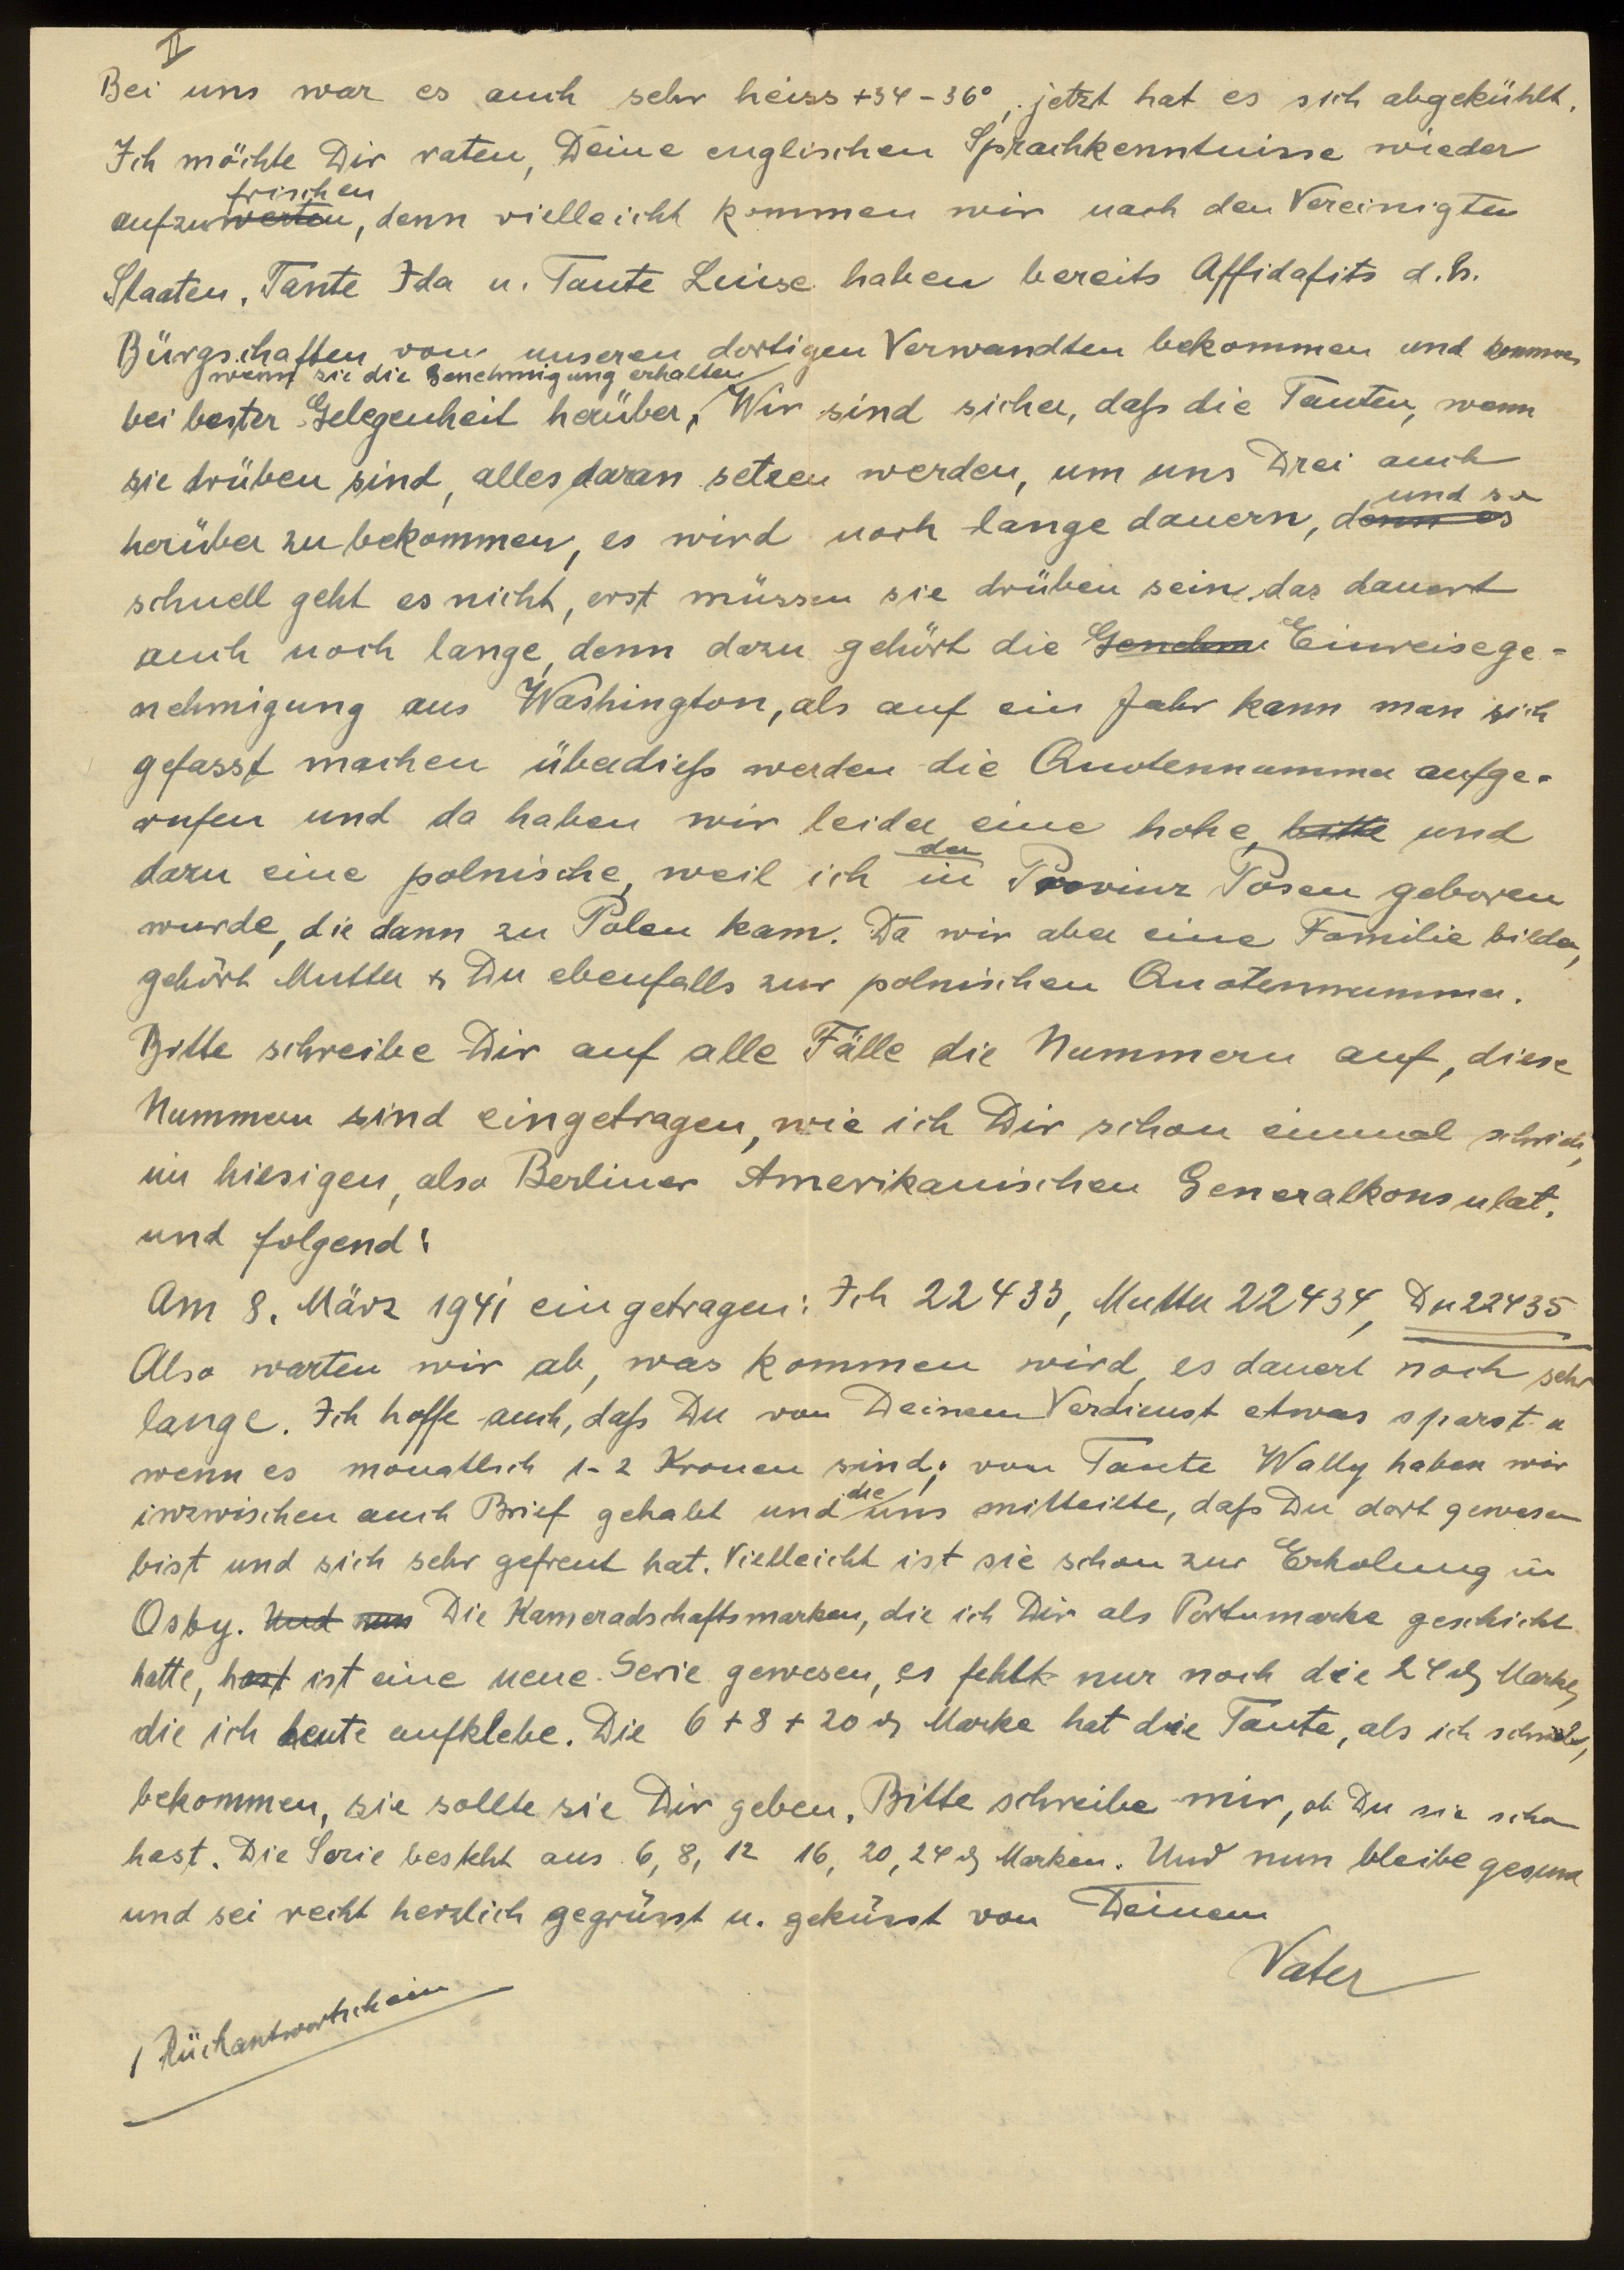 II
Bei uns war es auch sehr heiss +34-36°, jetzt hat es sich abgekühlt.
Ich möchte Dir raten, Deine englischen Sprachkenntnisse wieder
frischen
aufzuwerten, denn vielleicht kommen wir nach den Vereinigten
Staaten. Tante Ida u. Tante Luise haben bereits Affidafits d.h.
Bürgschaften von unseren dortigen Verwandten bekommen und kommen
wenn sie die Genehmigung erhalten
bei bester Gelegenheit herüber. Wir sind sicher, daß die Tanten, wenn
sie drüben sind, alles daran setzen werden, um uns Drei auch
und so
herüber zu bekommen, es wird noch lange dauern, denn es
schnell geht es nicht, erst müssen sie drüben sein, das dauert
auch noch lange, denn dazu gehört die Genehm Einreisege-
nehmigung aus Washington, als auf ein Jahr kann man sich
gefasst machen überdieß werden die Quotennummer aufge-
rufen und da haben wir leider eine hohe, bitte und
der
dazu eine polnische, weil ich in Provinz Posen geboren
wurde, die dann zu Polen kam. Da wir aber eine Familie bilden,
gehört Mutter & Du ebenfalls zur polnischen Quotennummer.
Bitte schreibe Dir auf alle Fälle die Nummern auf, diese
Nummern sind eingetragen, wie ich Dir schon einmal schrieb,
im hiesigen, also Berliner Amerikanischen Generalkonsulat.
und folgend:
Am 8. März 1941 eingetragen: Ich 22433, Mutter 22434, Du 22435
Also warten wir ab, was kommen wird, es dauert noch sehr
lange. Ich hoffe auch, daß Du von Deinem Verdienst etwas sparst u
wenn es monatlich 1-2 Kronen sind; von Tante Wally haben wir
die
inzwischen auch Brief gehabt und uns mitteilte, daß Du dort gewesen
bist und sich sehr gefreut hat. Vielleicht ist sie schon zur Erholung in
Osby. Und nun Die Kameradschaftsmarken, die ich Dir als Portomarke geschickt
hatte, hast ist eine neue Serie gewesen, es fehlt nur noch die 24 ₰ Marke,
die ich heute aufklebe. Die 6 + 8 + 20 ₰ Marke hat die Tante, als ich schrieb,
bekommen, sie sollte sie Dir geben. Bitte schreibe mir, ob Du sie schon
hast. Die Serie besteht aus 6, 8, 12 16, 20, 24 ₰ Marken. Und nun bleibe gesund
und sei recht herzlich gegrüsst u. geküsst von Deinem
Vater
1 Rückantwortschein